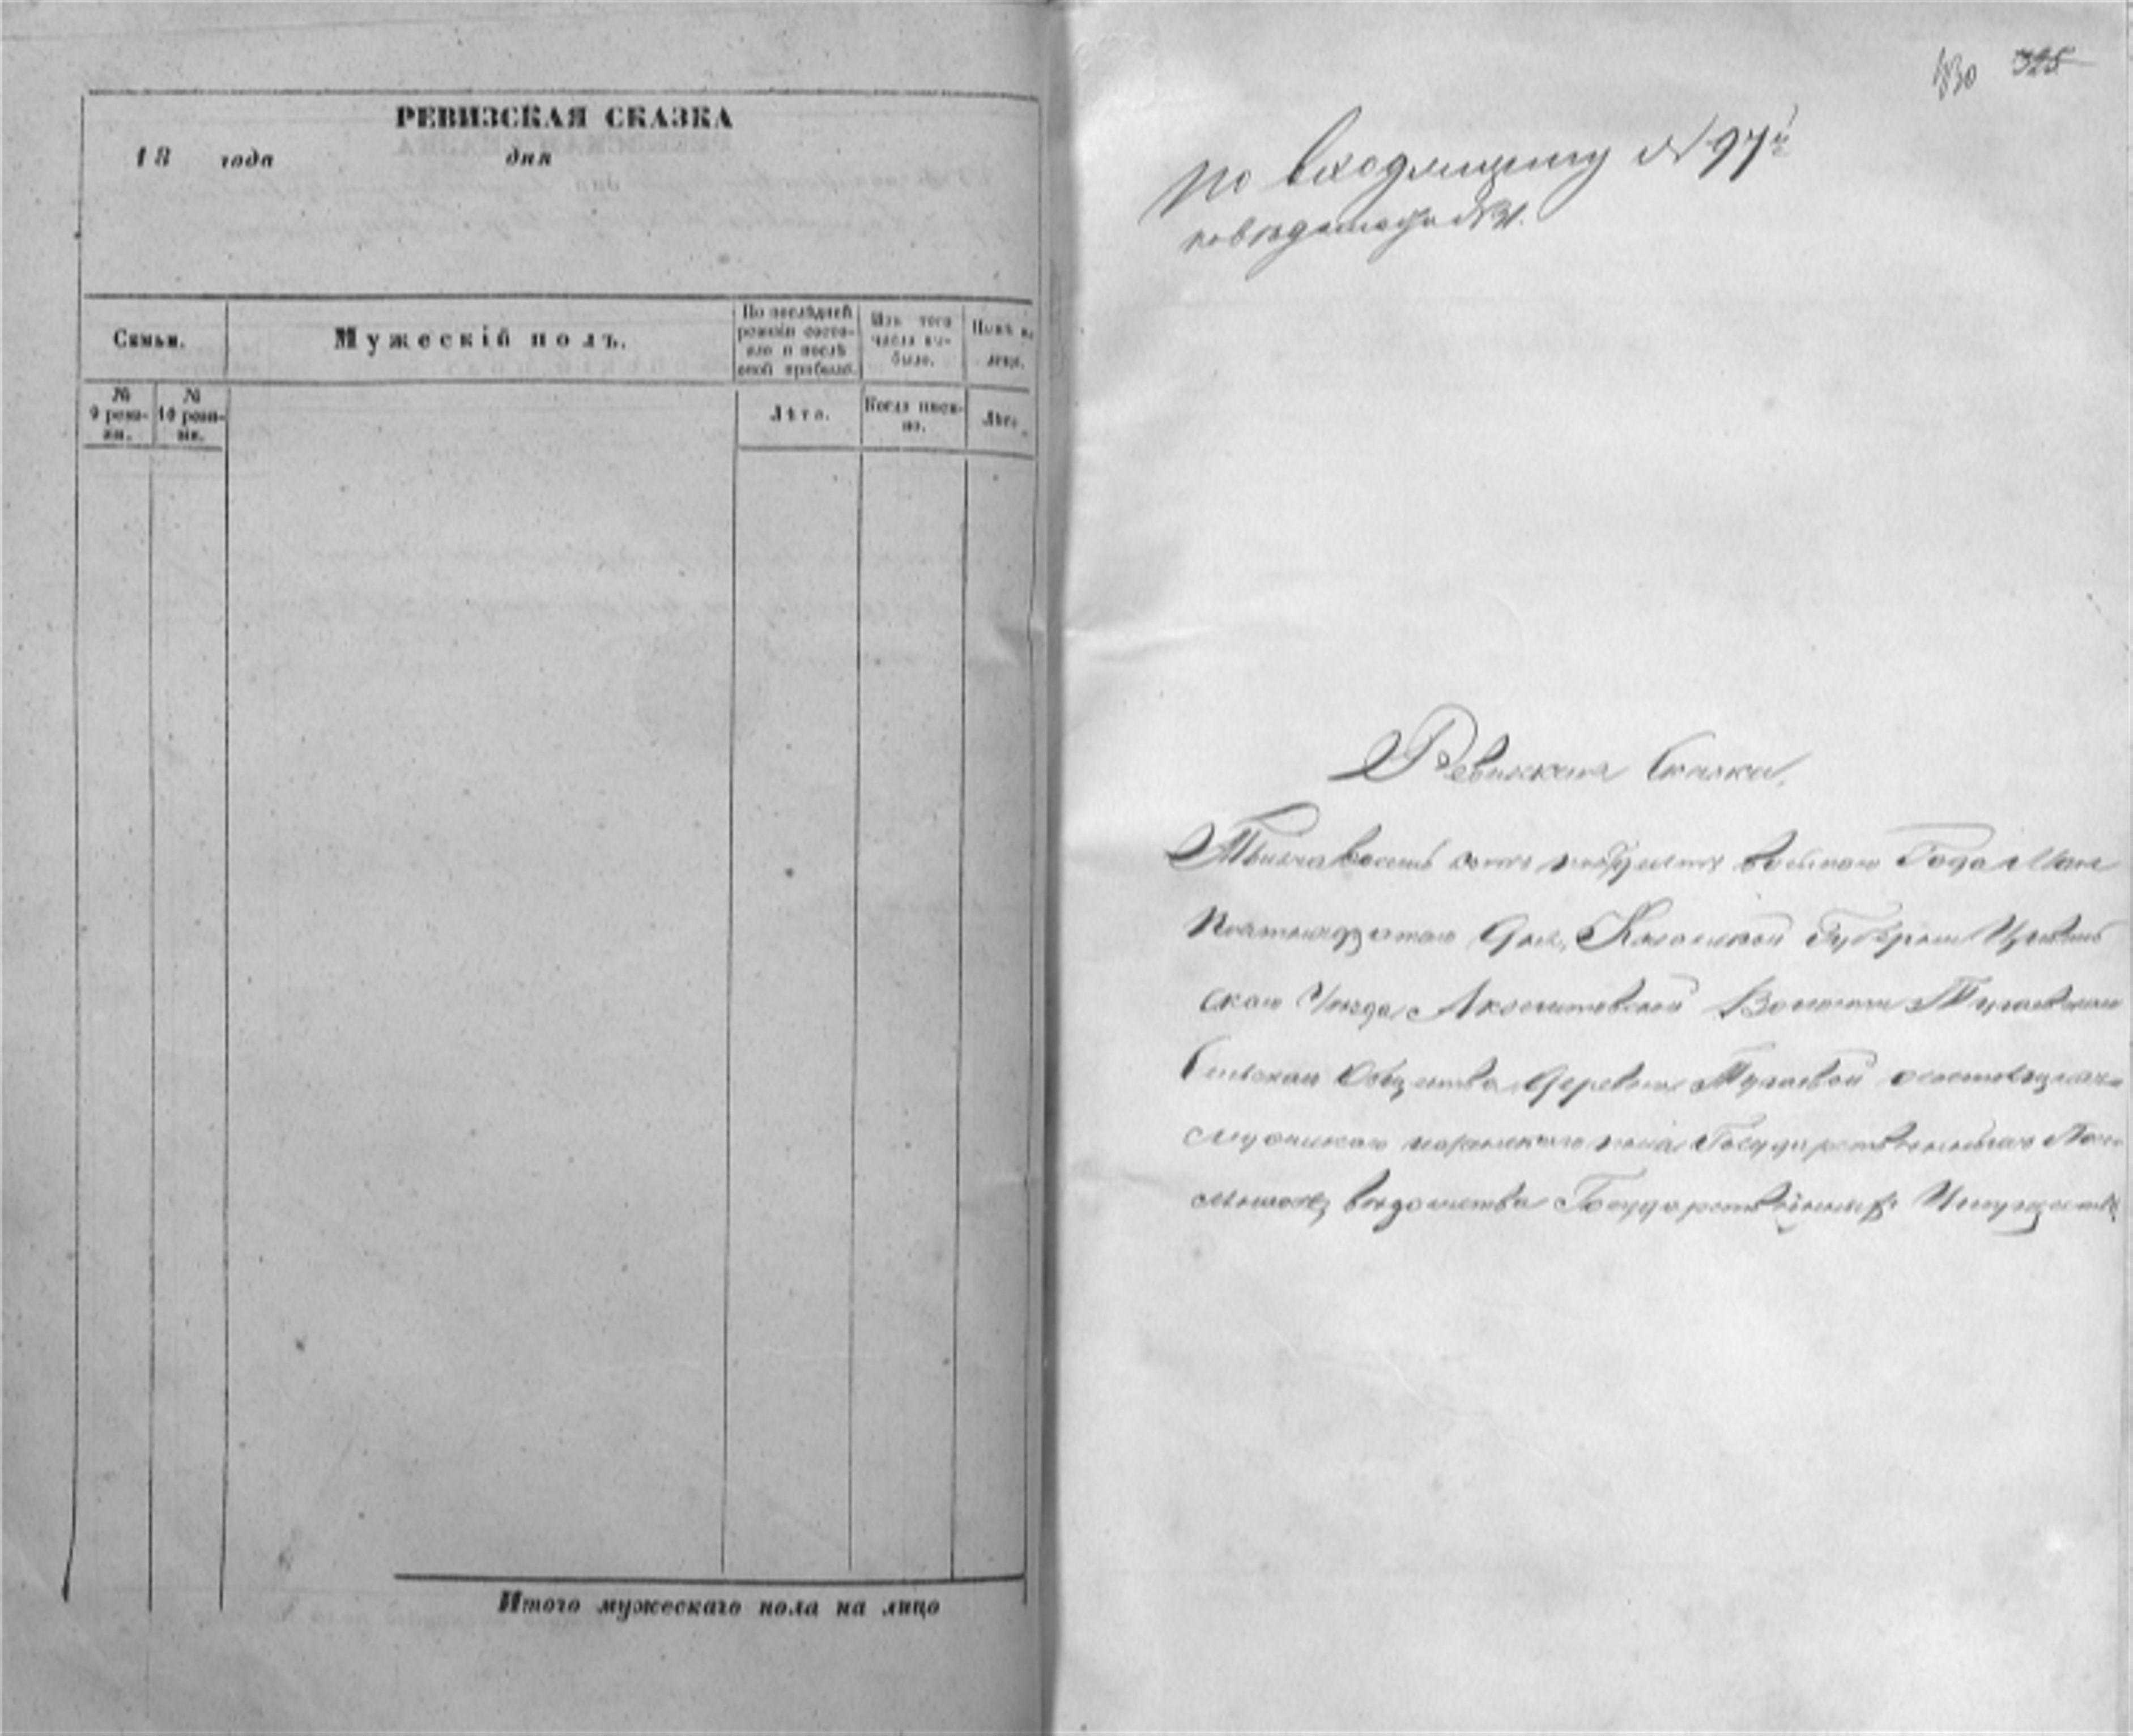 РЕВИЗСКАЯ СКАЗКА
18 года дня
Семьи.
Мужескій полъ.
По послѣдней ревизіи состояло и послѣ оной прибыло.
Изъ того числа выбыло.
Нынѣ на лицо.
№ 9 ревизіи.
№ 10 ревизіи.
Лѣта.
Когда именно.
Лѣта
Итого мужескаго пола на лицо
430 325
По входящему № 97й
по
Ревизская Сказка.
Тысяча восемь сотъ пятьдесятъ восьмаго Года Мая
Пятнадцатаго Дня, Казанской Губерніи Цивиль
скаго Уѣзда Акзегитовской Волости Тугаевскаго
Сельскаго Общества Деревни Тугаевой о состоящихъ
мужескаго и женскаго пола Государственныхъ
вѣдомства Государственныхъ Имуществъ